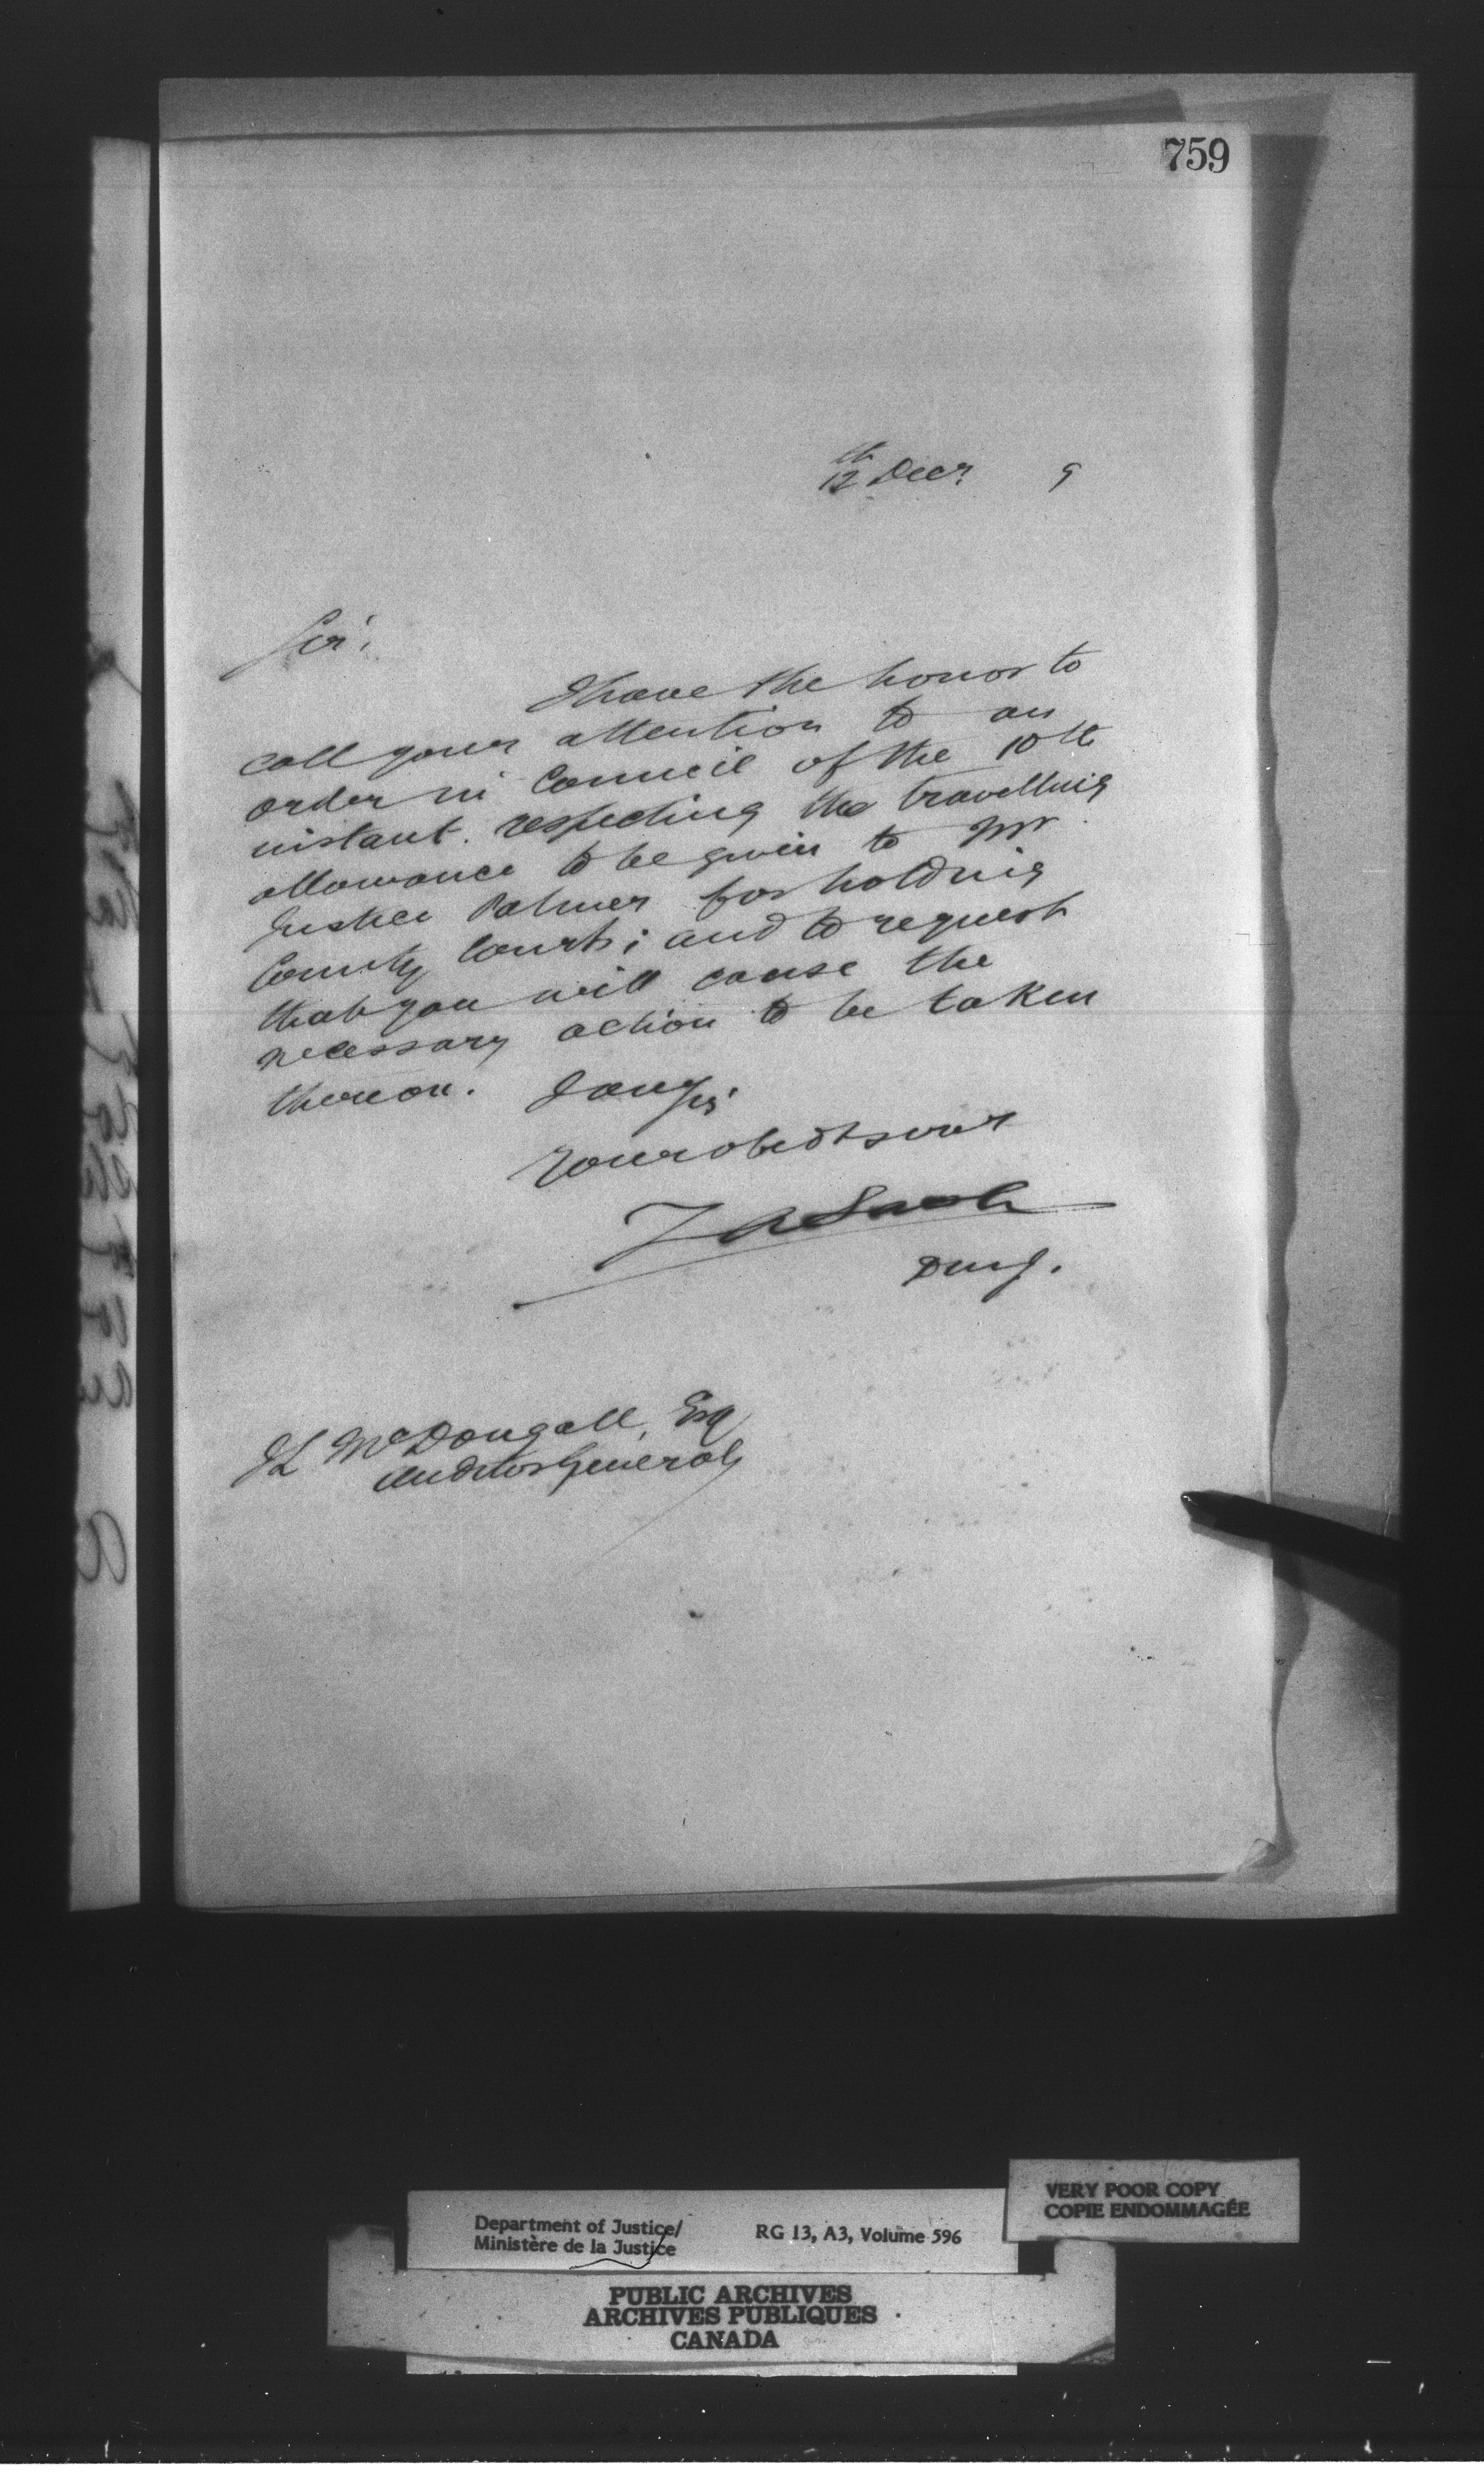 759
12th Decr 9
Sir,
I have the honor to
call your attention to an
order in Council of the 10th
instant. respecting the travelling
allowance to be given to Mr
Justice Palmer for holding
County Courts; and to request
that you will cause the
necessary action to be taken
thereon.
I am Sir
Your obedt servt
Z A Lash
DMJ.
JL McDougall, Esq
Auditor General
VERY POOR COPY
COPIE ENDOMMAGÉE
Department of Justice/
Ministère de la Justice
RG 13, A3, Volume 596
PUBLIC ARCHIVES
ARCHIVES PUBLIQUES
CANADA